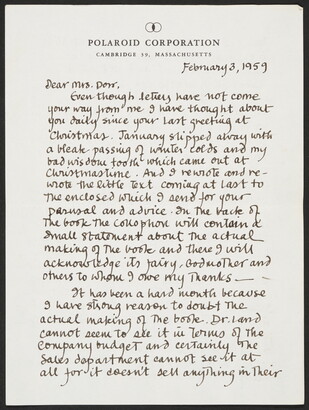 POLAROID CORPORATION
CAMBRIDGE 39, MASSACHUSETTS
February 3, 1959
Dear Mrs. Dorr.
Even though letters have not come
your way from me I have thought about
you daily since your last greeting at
Christmas. January slipped away with
a bleak passing of winter colds and my
bad wisdom tooth which came out at
Christmastime. And I rewrote and re-
wrote the little text coming at last to
the enclosed which I send for your
perusal and advice. In the back of
the book the collophon will contain a
small statement about the actual
making of the book and there I will
acknowledge its fairy, Godmother and
others to whom I owe my thanks —
It has been a hard month because
I have strong reason to doubt the
actual making of the book. Dr. Land
cannot seem to see it in terms of the
Company budget and certainly the
Sales department cannot see it at
all for it doesn't sell anything in their